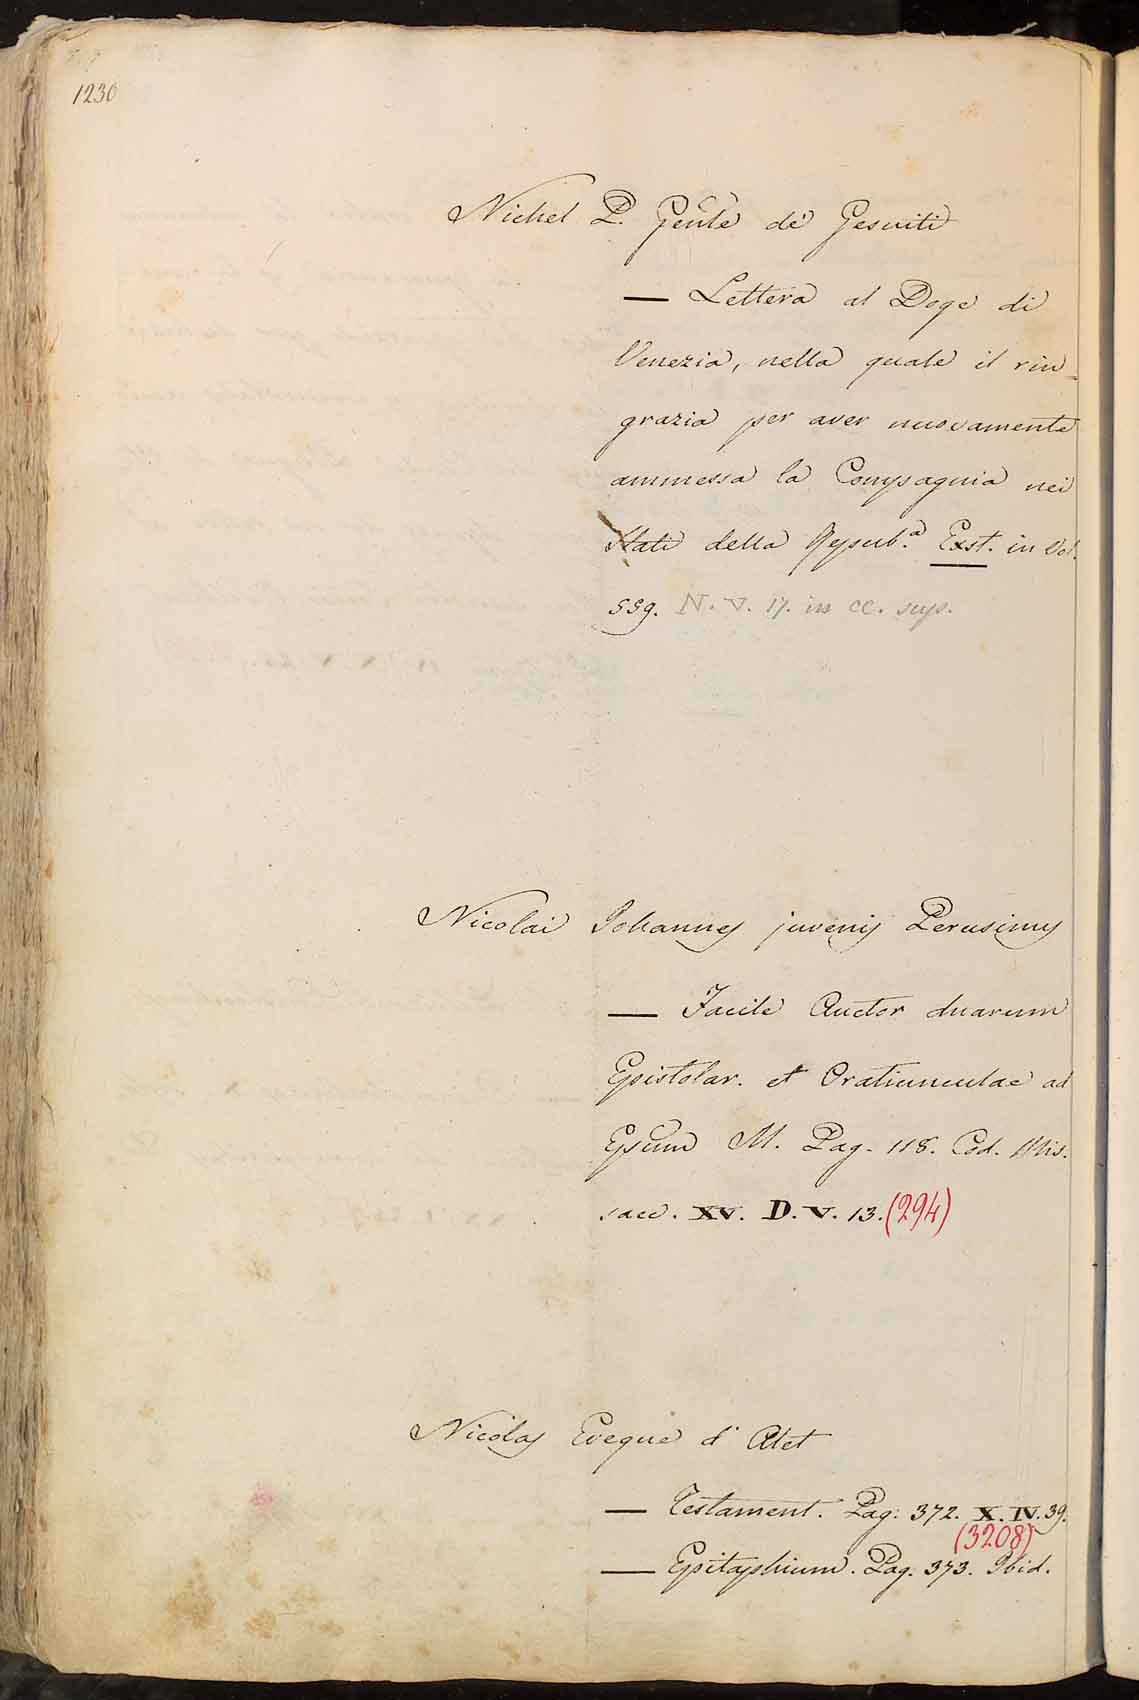 1230
Nichel P. Gen̄le dè Gesuiti
— Lettera al Doge di
Venezia, nella quale il rin-
grazia per aver nuovamente
ammessa la Compagnia nei
Stati della Repub.a Exst. in Vol.
559. N. V. 17. in CC. sup.
Nicolai Johannes juvenis Perusinus
— Facile Auctor duarum
Epistolar. et Oratiunculae ad
M. Pag. 118. Cod. Mis.
saec. XV. D. V. 13. (294)
Nicolas Eveque d' Alet
— Testament. Pag: 372. X. IV. 39.
(3208)
— Epitaphium. Pag. 373. Ibid.